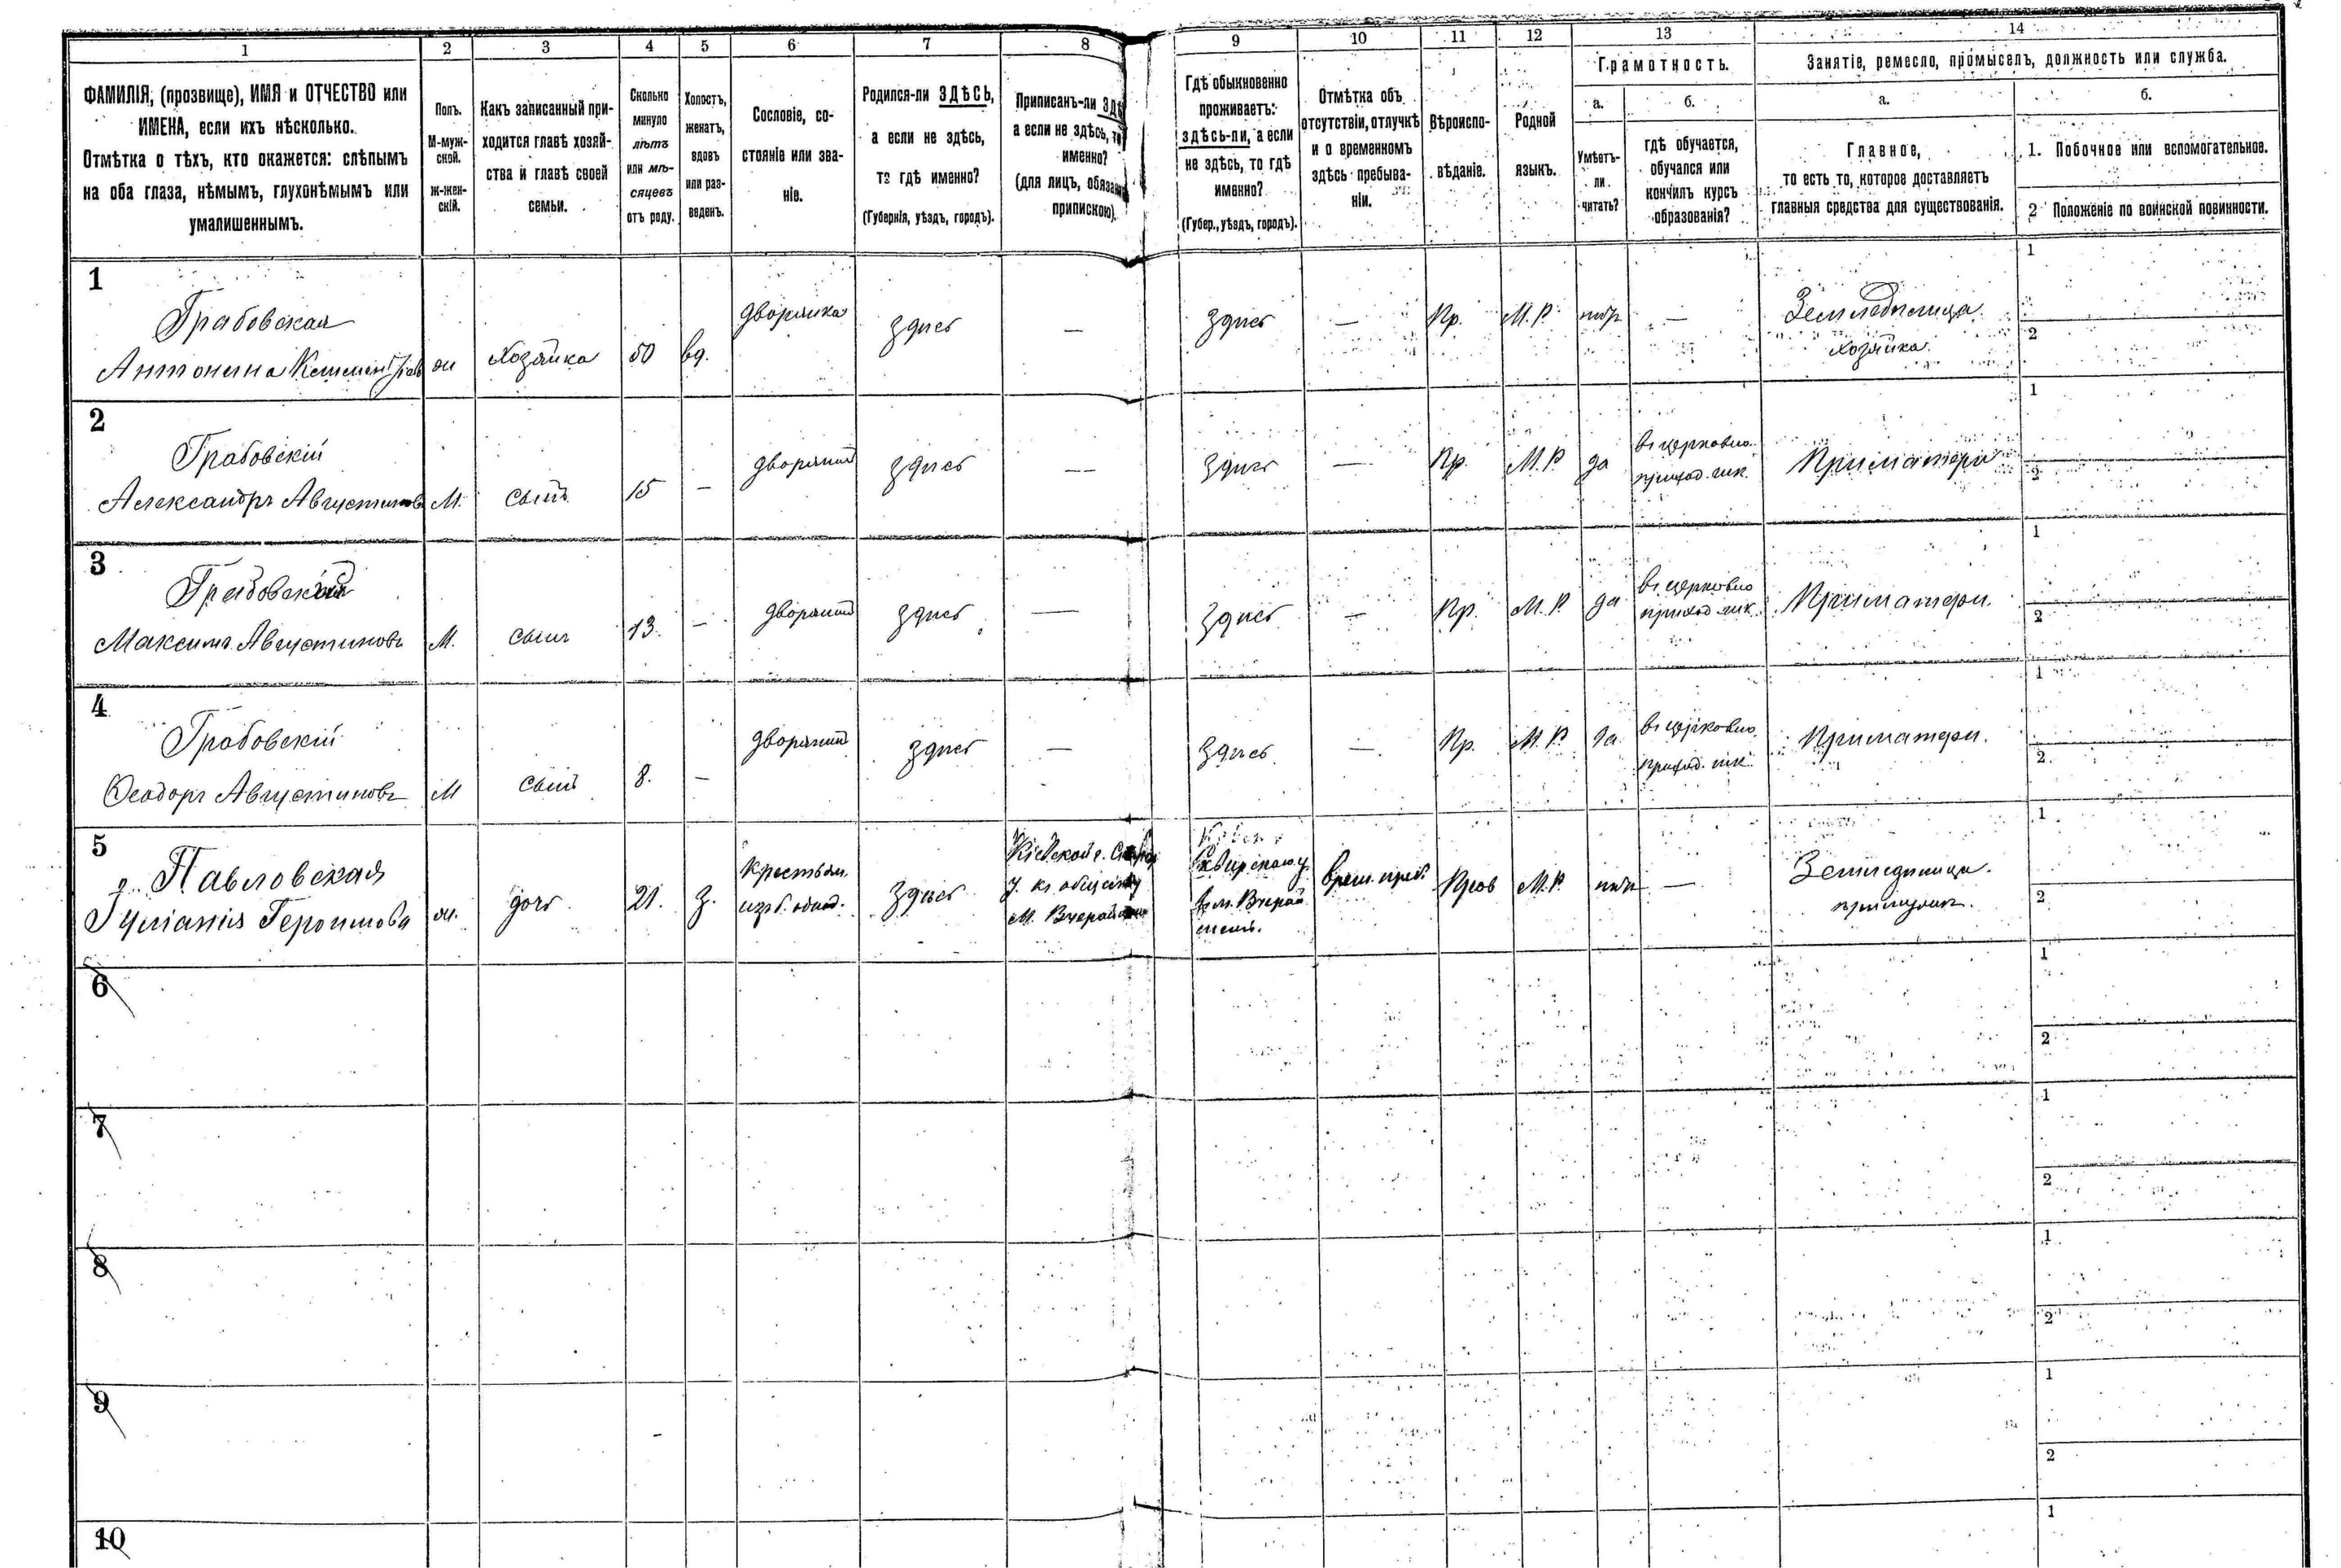 1 2 3 4 5 6 7 8 9 10 11 12 13 14
ФАМИЛІЯ, (прозвище), ИМЯ и ОТЧЕСТВО или
ИМЕНА, если ихъ нѣсколько.
Отмѣтка о тѣхъ, кто окажется: слѣпымъ
на оба глаза, нѣмымъ, глухонѣмымъ или
умалишеннымъ.
Полъ.
М-муж-
ской.
ж-жен-
скій.
Какъ записанный при-
ходится главѣ хозяй-
ства и главѣ своей
семьи.
Сколько
минуло
лѣтъ
или мѣ-
сяцевъ
отъ роду.
Холостъ,
женатъ,
вдовъ
или раз-
веденъ.
Сословіе, со-
стояніе или зва-
ніе.
Родился-ли ЗДѢСЬ,
а если не здѣсь,
то гдѣ именно?
(Губернія, уѣздъ, городъ).
Приписанъ-ли ЗДѢ
а если не здѣсь, то
именно?
(для лицъ, обязан
припискою)
Гдѣ обыкновенно
проживаетъ:
здѣсь-ли, а если
не здѣсь, то гдѣ
именно?
(Губер., уѣздъ, городъ).
Отмѣтка объ
отсутствіи, отлучкѣ
и о временномъ
здѣсь пребыва-
ніи.
Вѣроиспо-
вѣданіе.
Родной
языкъ.
Грамотность.
а.
Умѣетъ-
ли
читать?
б.
гдѣ обучается,
обучался или
кончилъ курсъ
образованія?
Занятіе, ремесло, промыселъ, должность или служба.
а.
Главное,
то есть то, которое доставляетъ
главныя средства для существованія.
б.
1. Побочное или вспомогательное.
2 Положеніе по воинской повинности.
1
Грабовская
Антонина
Хозяйка 50 вд. дворянка здѣсь — здѣсь — Пр. М.Р. нѣтъ —
Земледѣлица
хозяйка
1
2
2
Грабовскій
Александръ Августиновъ
М. сынъ 15 — дворянинъ здѣсь — здѣсь — Пр. М.Р да
въ церковно
приход. шк.
При матери
1
2
3
Грабовскій
Максимъ Августиновъ
М. сынъ 13. — дворянинъ здѣсь — здѣсь — Пр. М.Р. да
въ церковно
приход шк.
При матери.
1
2
4
Грабовскій
Ѳеодоръ Августиновъ
М сынъ 8. — дворянинъ здѣсь — здѣсь — Пр. М.Р. да
въ церковно
приход. шк.
При матери.
1
2
5
Павловская
дочь 21. З.
Крестьян.
здѣсь
Кіевской г.
у. къ
м.
Сквирскаго у
въ м.
врем. преб. Прав М.Р. нѣтъ —
1
2
6
1
2
7
1
2
8
1
2
9
1
2
10
1